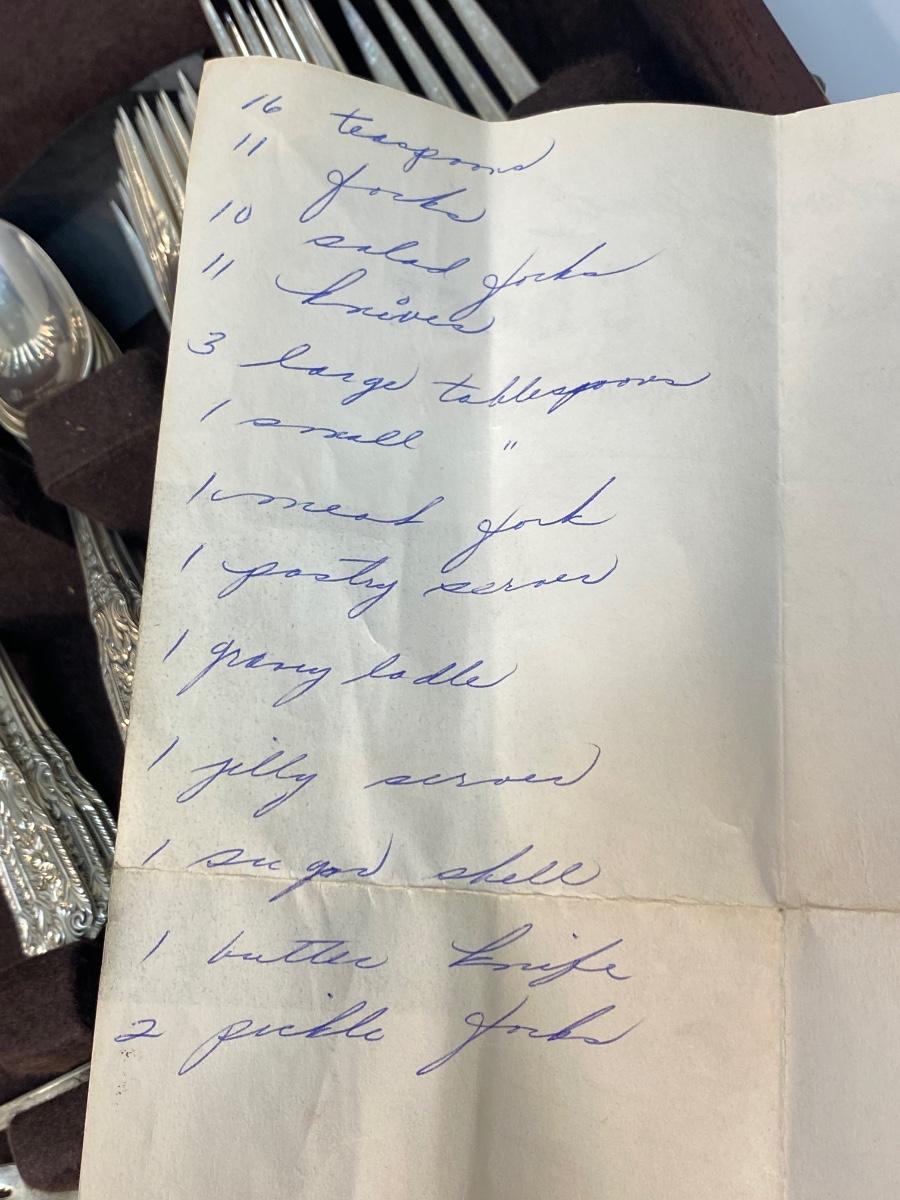 16 teaspoons
11 forks
10 salad forks
11 knives
3 large tablespoons
1 small "
1 meat fork
1 pastry server
1 gravy ladle
1 jelly server
1 sugar shell
1 butter knife
2 pickle forks